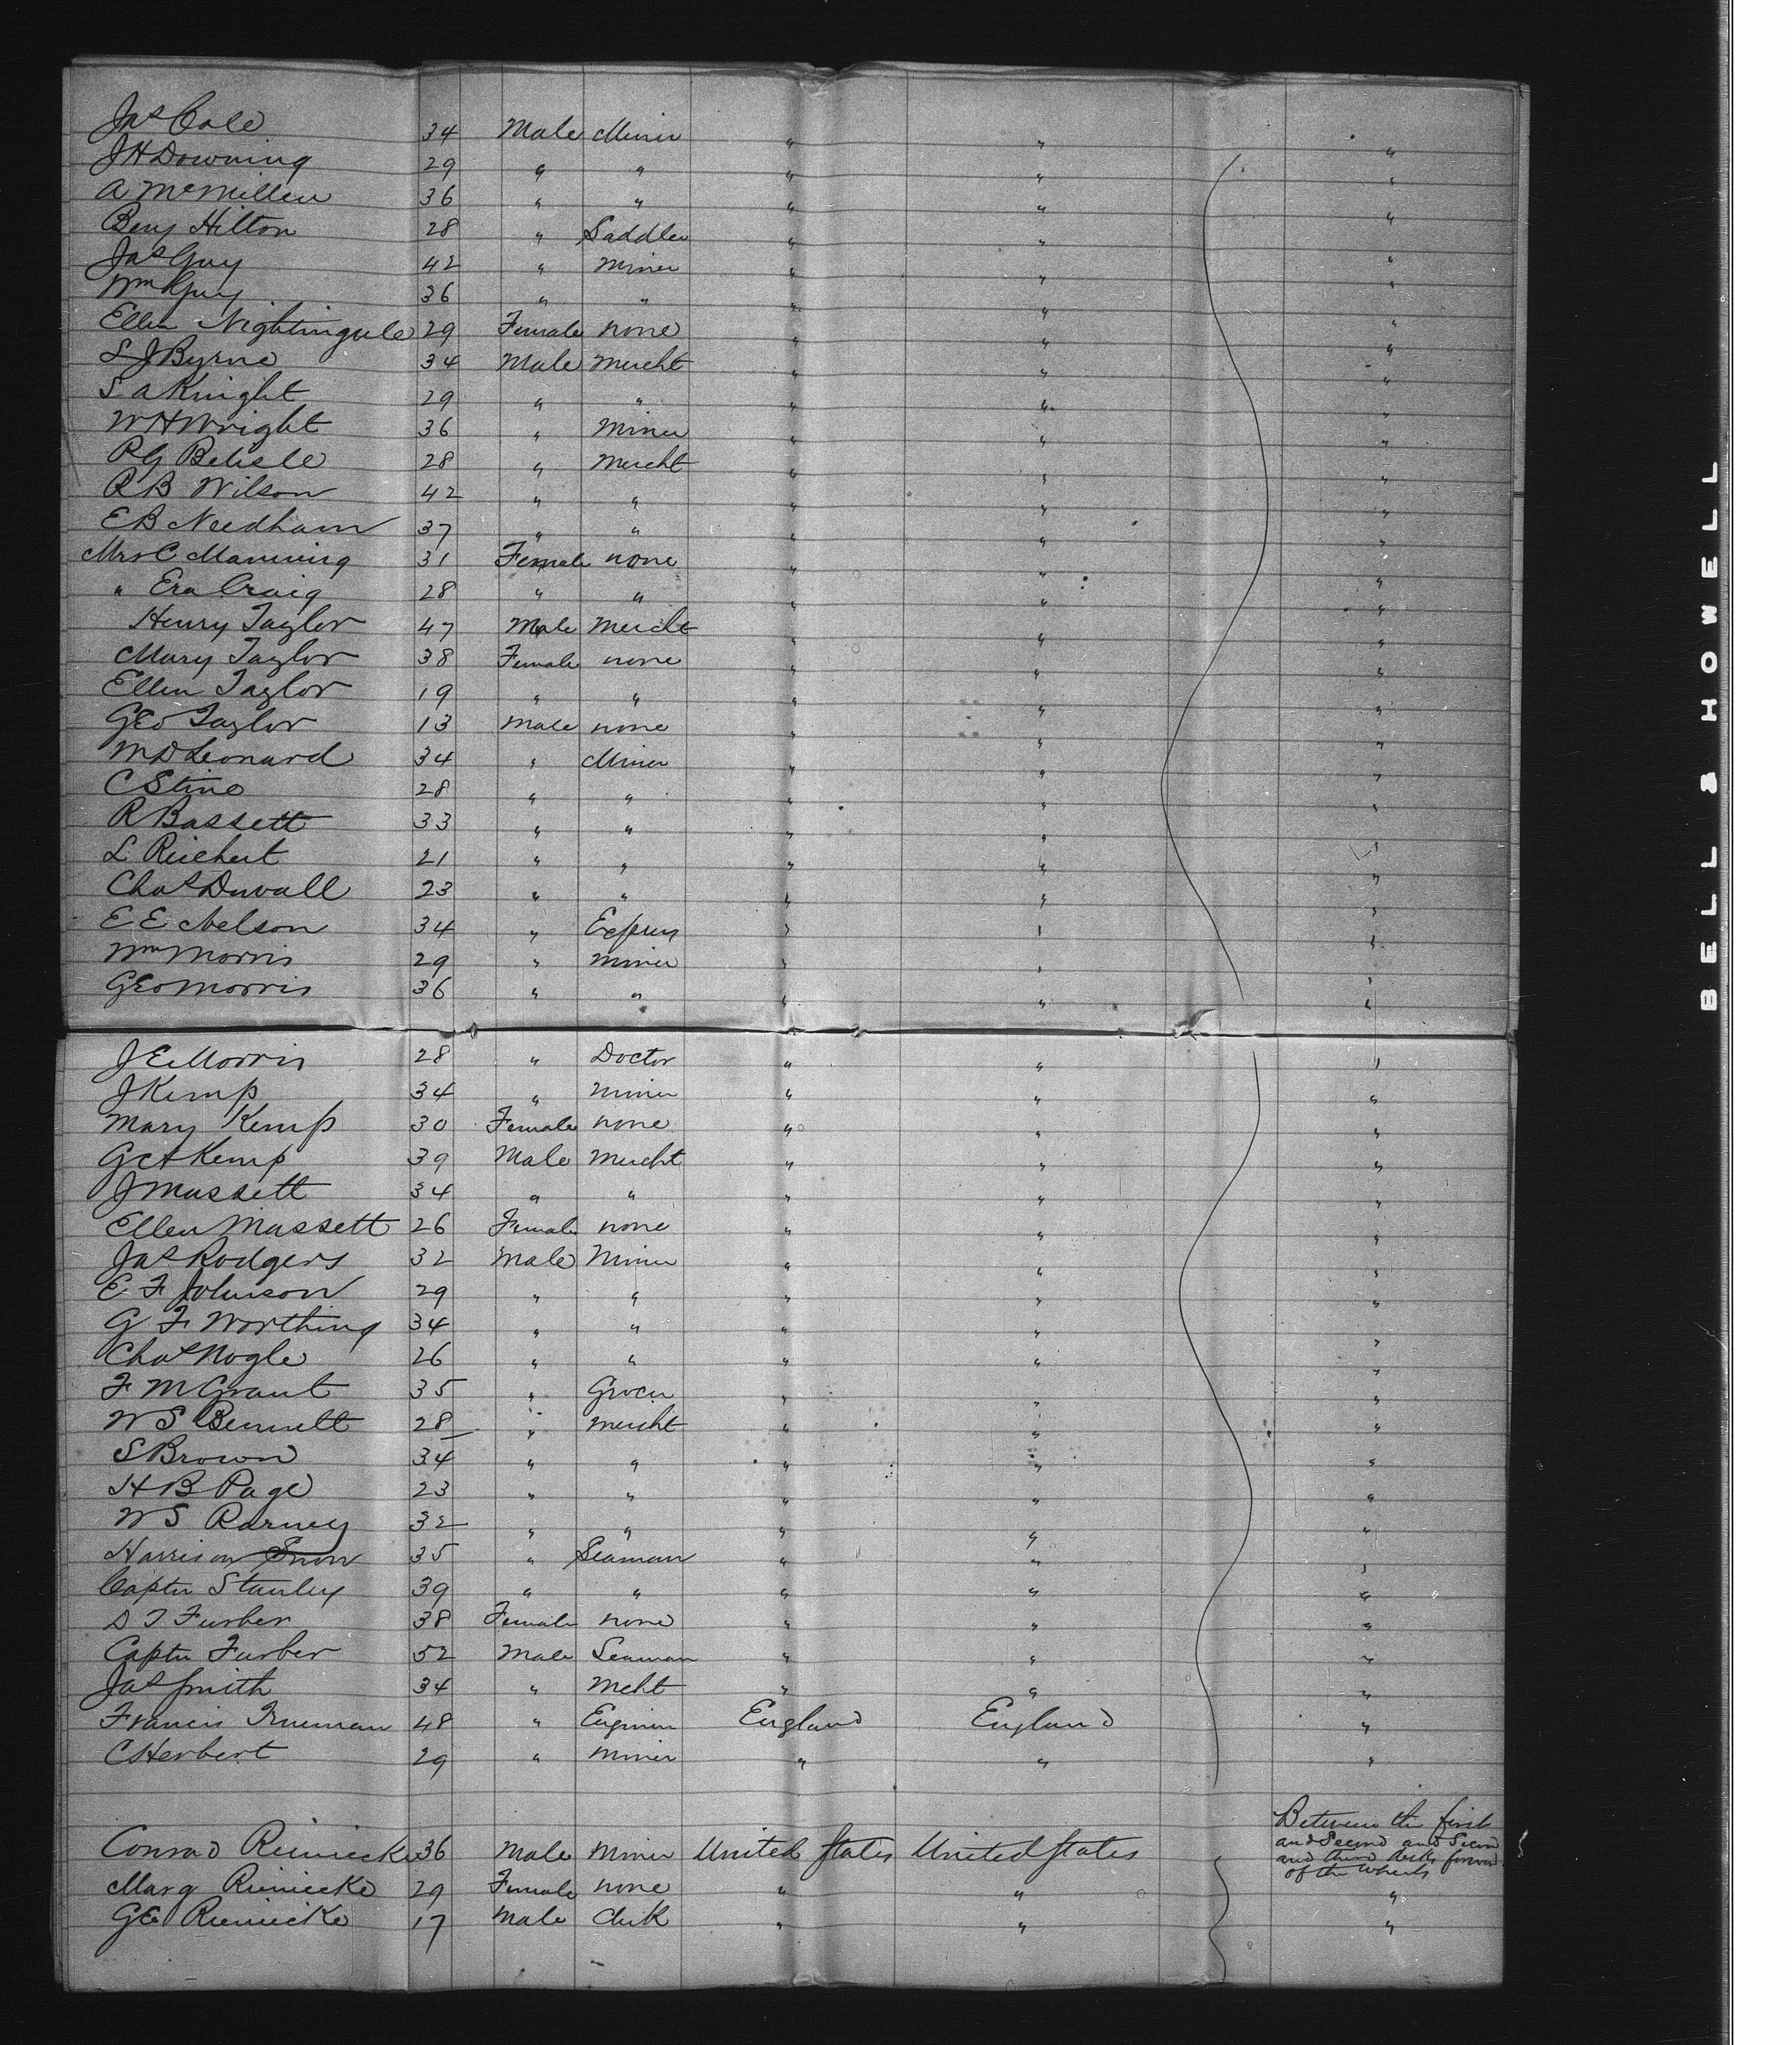 Jas Cole 34 Male Miner " " "
J H Downing 29 " " " " "
A McMillen 36 " " " " "
Benj Hilton 28 " Saddler " " "
Jas Guy 42 " Miner " " "
Wm Guy 36 " " " " "
Ellen Nightingale 29 Female none " " "
L J Byrne 34 Male Mercht " " "
S A Knight 29 " " " " "
W H Wright 36 " Miner " " "
R G Belisle 28 " Mercht " " "
R B Wilson 42 " " " " "
E B Needham 37 " " " " "
Mrs C Manning 31 Female none " " "
" Era Craig 28 " " " " "
Henry Taylor 47 Male Mercht " " "
Mary Taylor 38 Female none " " "
Ellen Taylor 19 " " " " "
Geo Taylor 13 Male none " " "
M D Leonard 34 " Miner " " "
C Stine 28 " " " " "
R Bassett 33 " " " " "
L Reichert 21 " " " " "
Chas Duvall 23 " " " " "
E E Nelson 34 " " " "
Wm Morris 29 " Miner " " "
Geo Morris 36 " " " " "
J E Morris 28 " Doctor " " "
J Kemp 34 " Miner " " "
Mary Kemp 30 Female none " " "
G A Kemp 39 Male Mercht " " "
J Massett 34 " " " " "
Ellen Massett 26 Female none " " "
Jas Rodgers 32 Male Miner " " "
E F Johnson 29 " " " " "
G F Worthing 34 " " " " "
Chas Nogle 26 " " " " "
F M Grant 35 " Grocer " " "
W S Bennett 28 " Mercht " " "
S Brown 34 " " " " "
H B Page 23 " " " " "
W S Rarney 32 " " " " "
Harrison Snow 35 " Seaman " " "
Captn Stanley 39 " " " " "
D T Furber 38 Female none " " "
Captn Furber 52 Male Seaman " " "
Jas Smith 34 " Mcht " " "
Francis Trueman 48 " Engineer England England "
C Herbert 29 " Miner " " "
Between the first
and Second and Second
and third decks forward
of the Wheels
Conrad Reinecke 36 Male Miner United States United States
Marg Reinecke 29 Female none " " "
GE Reinecke 17 Male Clerk " " "
BELL & HOWELL